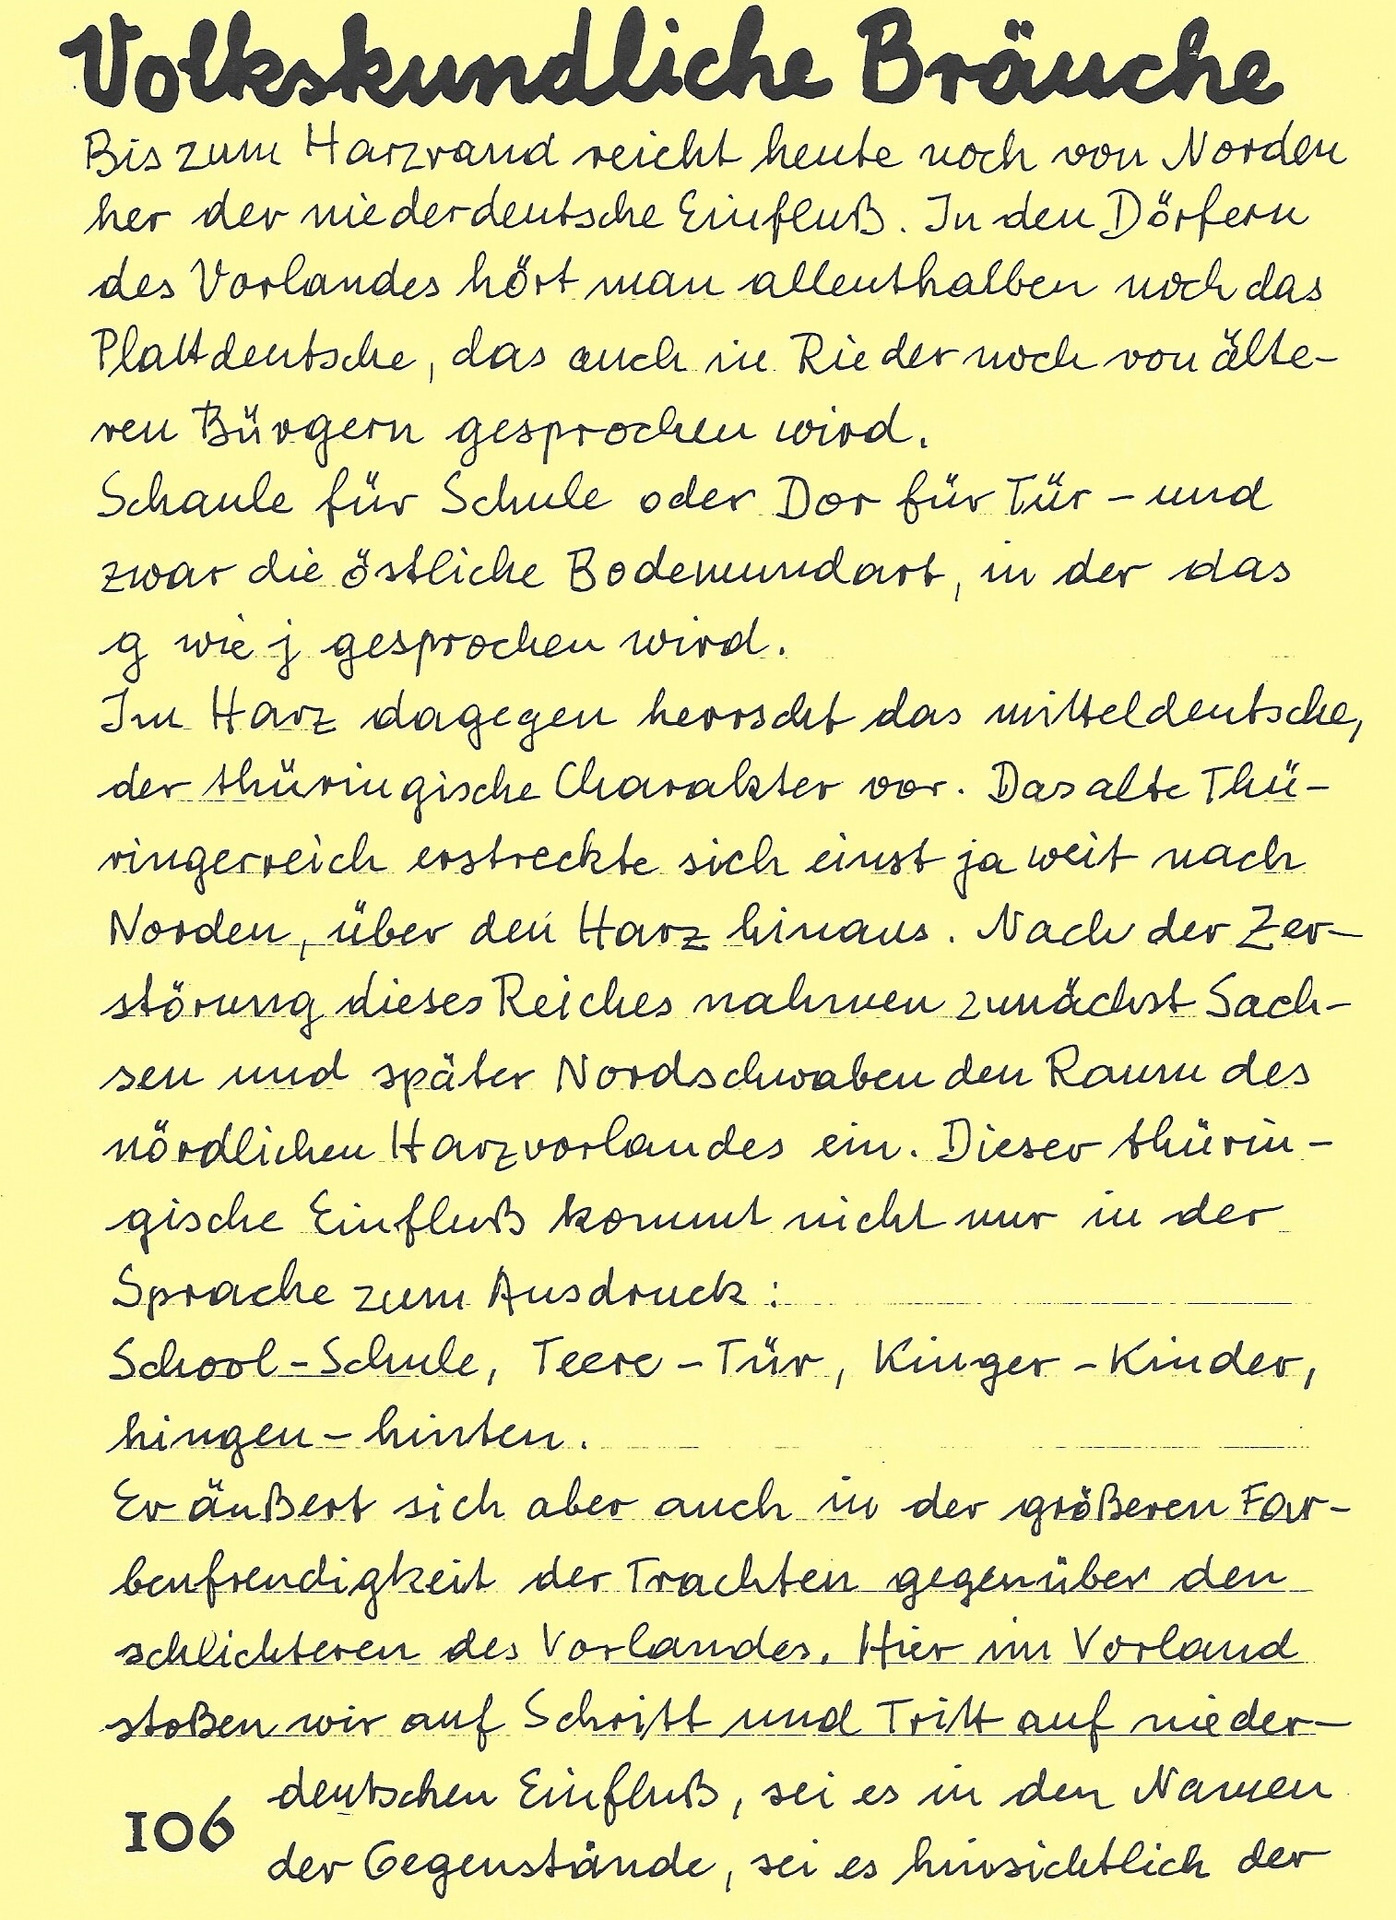 Volkskundliche Bräuche
Bis zum Harzrand reicht heute noch von Norden
her der niederdeutsche Einfluß. In den Dörfern
des Vorlandes hört man allenthalben noch das
Plattdeutsche, das auch in Rieder noch von älte-
ren Bürgern gesprochen wird.
Schaule für Schule oder Dor für Tür - und
zwar die östliche Bodemundart, in der das
g wie j gesprochen wird.
Im Harz dagegen herrscht das mitteldeutsche,
der thüringische Charakter vor. Das alte Thü-
ringerreich erstreckte sich einst ja weit nach
Norden, über den Harz hinaus. Nach der Zer-
störung dieses Reiches nahmen zunächst Sach-
sen und später Nordschwaben den Raum des
nördlichen Harzvorlandes ein. Dieser thürin-
gische Einfluß kommt nicht nur in der
Sprache zum Ausdruck:
School - Schule, Teere - Tür, Kinger - Kinder,
hingen - hinten.
Er äußert sich aber auch in der größeren Far-
benfreudigkeit der Trachten gegenüber den
schlichteren des Vorlandes. Hier im Vorland
stoßen wir auf Schritt und Tritt auf nieder-
deutschen Einfluß, sei es in den Namen
der Gegenstände, sei es hinsichtlich der
106